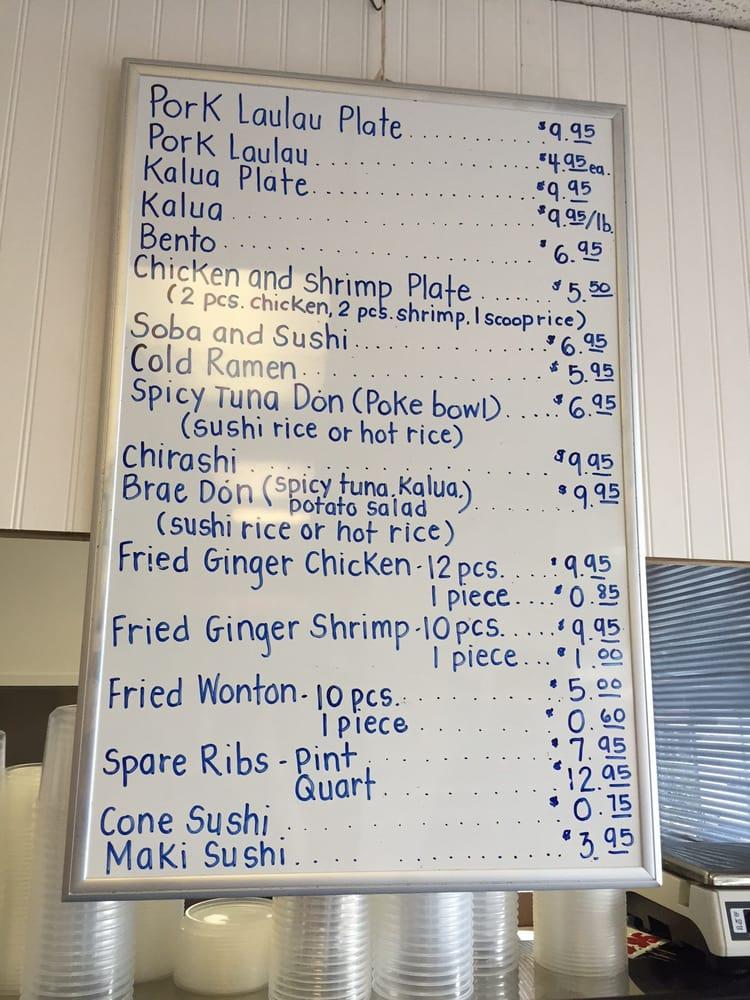 Pork Laulau Plate........... $9.95
Pork Laulau.................. $4.95 ea.
Kalua Plate.................. $9.95
Kalua........................ $9.95/lb.
Bento........................ $6.95
Chicken and Shrimp Plate....... $5.50
(2 pcs. chicken, 2 pcs. shrimp, 1 scoop rice)
Soba and Sushi............... $6.95
Cold Ramen................... $5.95
Spicy Tuna Don (Poke bowl)..... $6.95
(sushi rice or hot rice)
Chirashi..................... $9.95
Brae Don (spicy tuna, Kalua,) $9.95
potato salad
(sushi rice or hot rice)
Fried Ginger Chicken-12 pcs..... $9.95
1 piece.... $0.85
Fried Ginger Shrimp-10 pcs...... $9.95
1 piece... $1.00
Fried Wonton-10 pcs........... $5.00
1 piece.......... $0.60
Spare Ribs-Pint............. $7.95
Quart............. $12.95
Cone Sushi................... $0.75
Maki Sushi................... $3.95